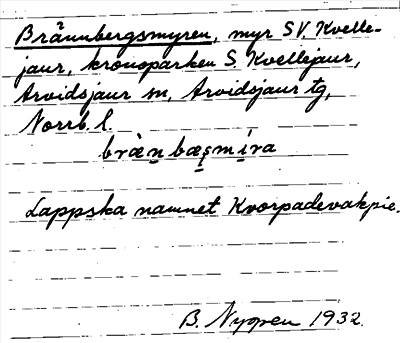 Brännbergsmyren, myr SV. Kvelle-
jaur, kronoparken S. Kvellejaur,
Arvidsjaur sn, Arvidsjaur tg,
Norrb. l.
bræ̀n bæşmíra
Lappska namnet Kvorpadevakpie.
B. Nyopen 1932.